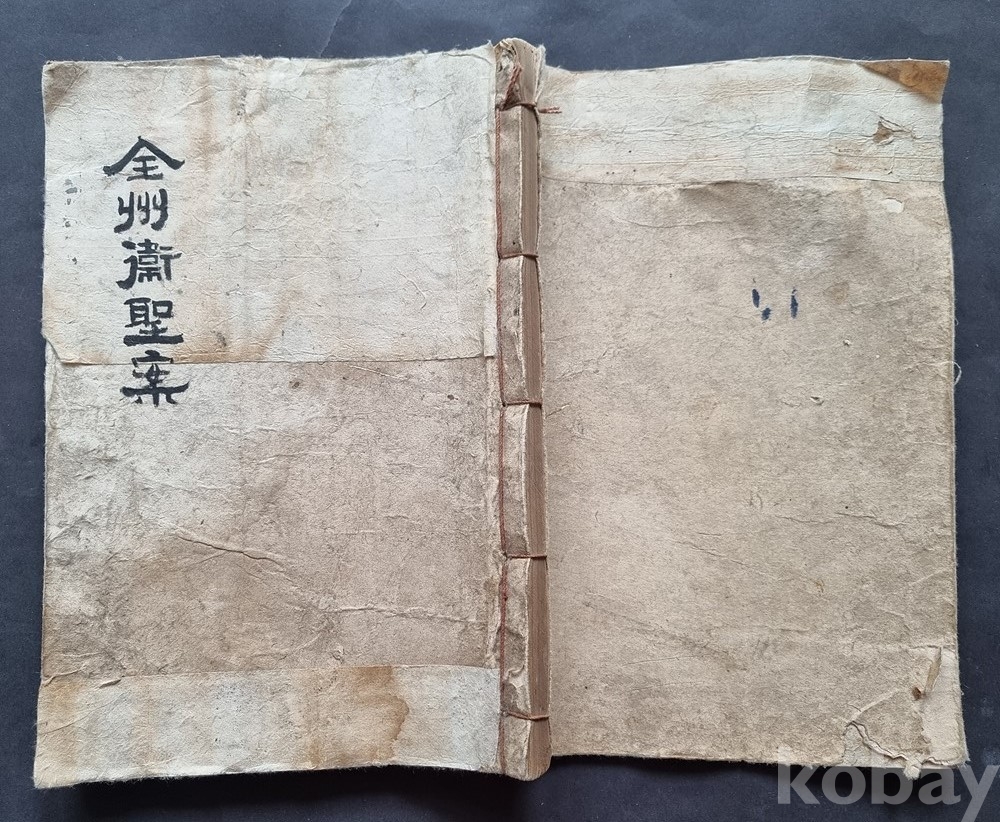 全州衞聖案
kobay